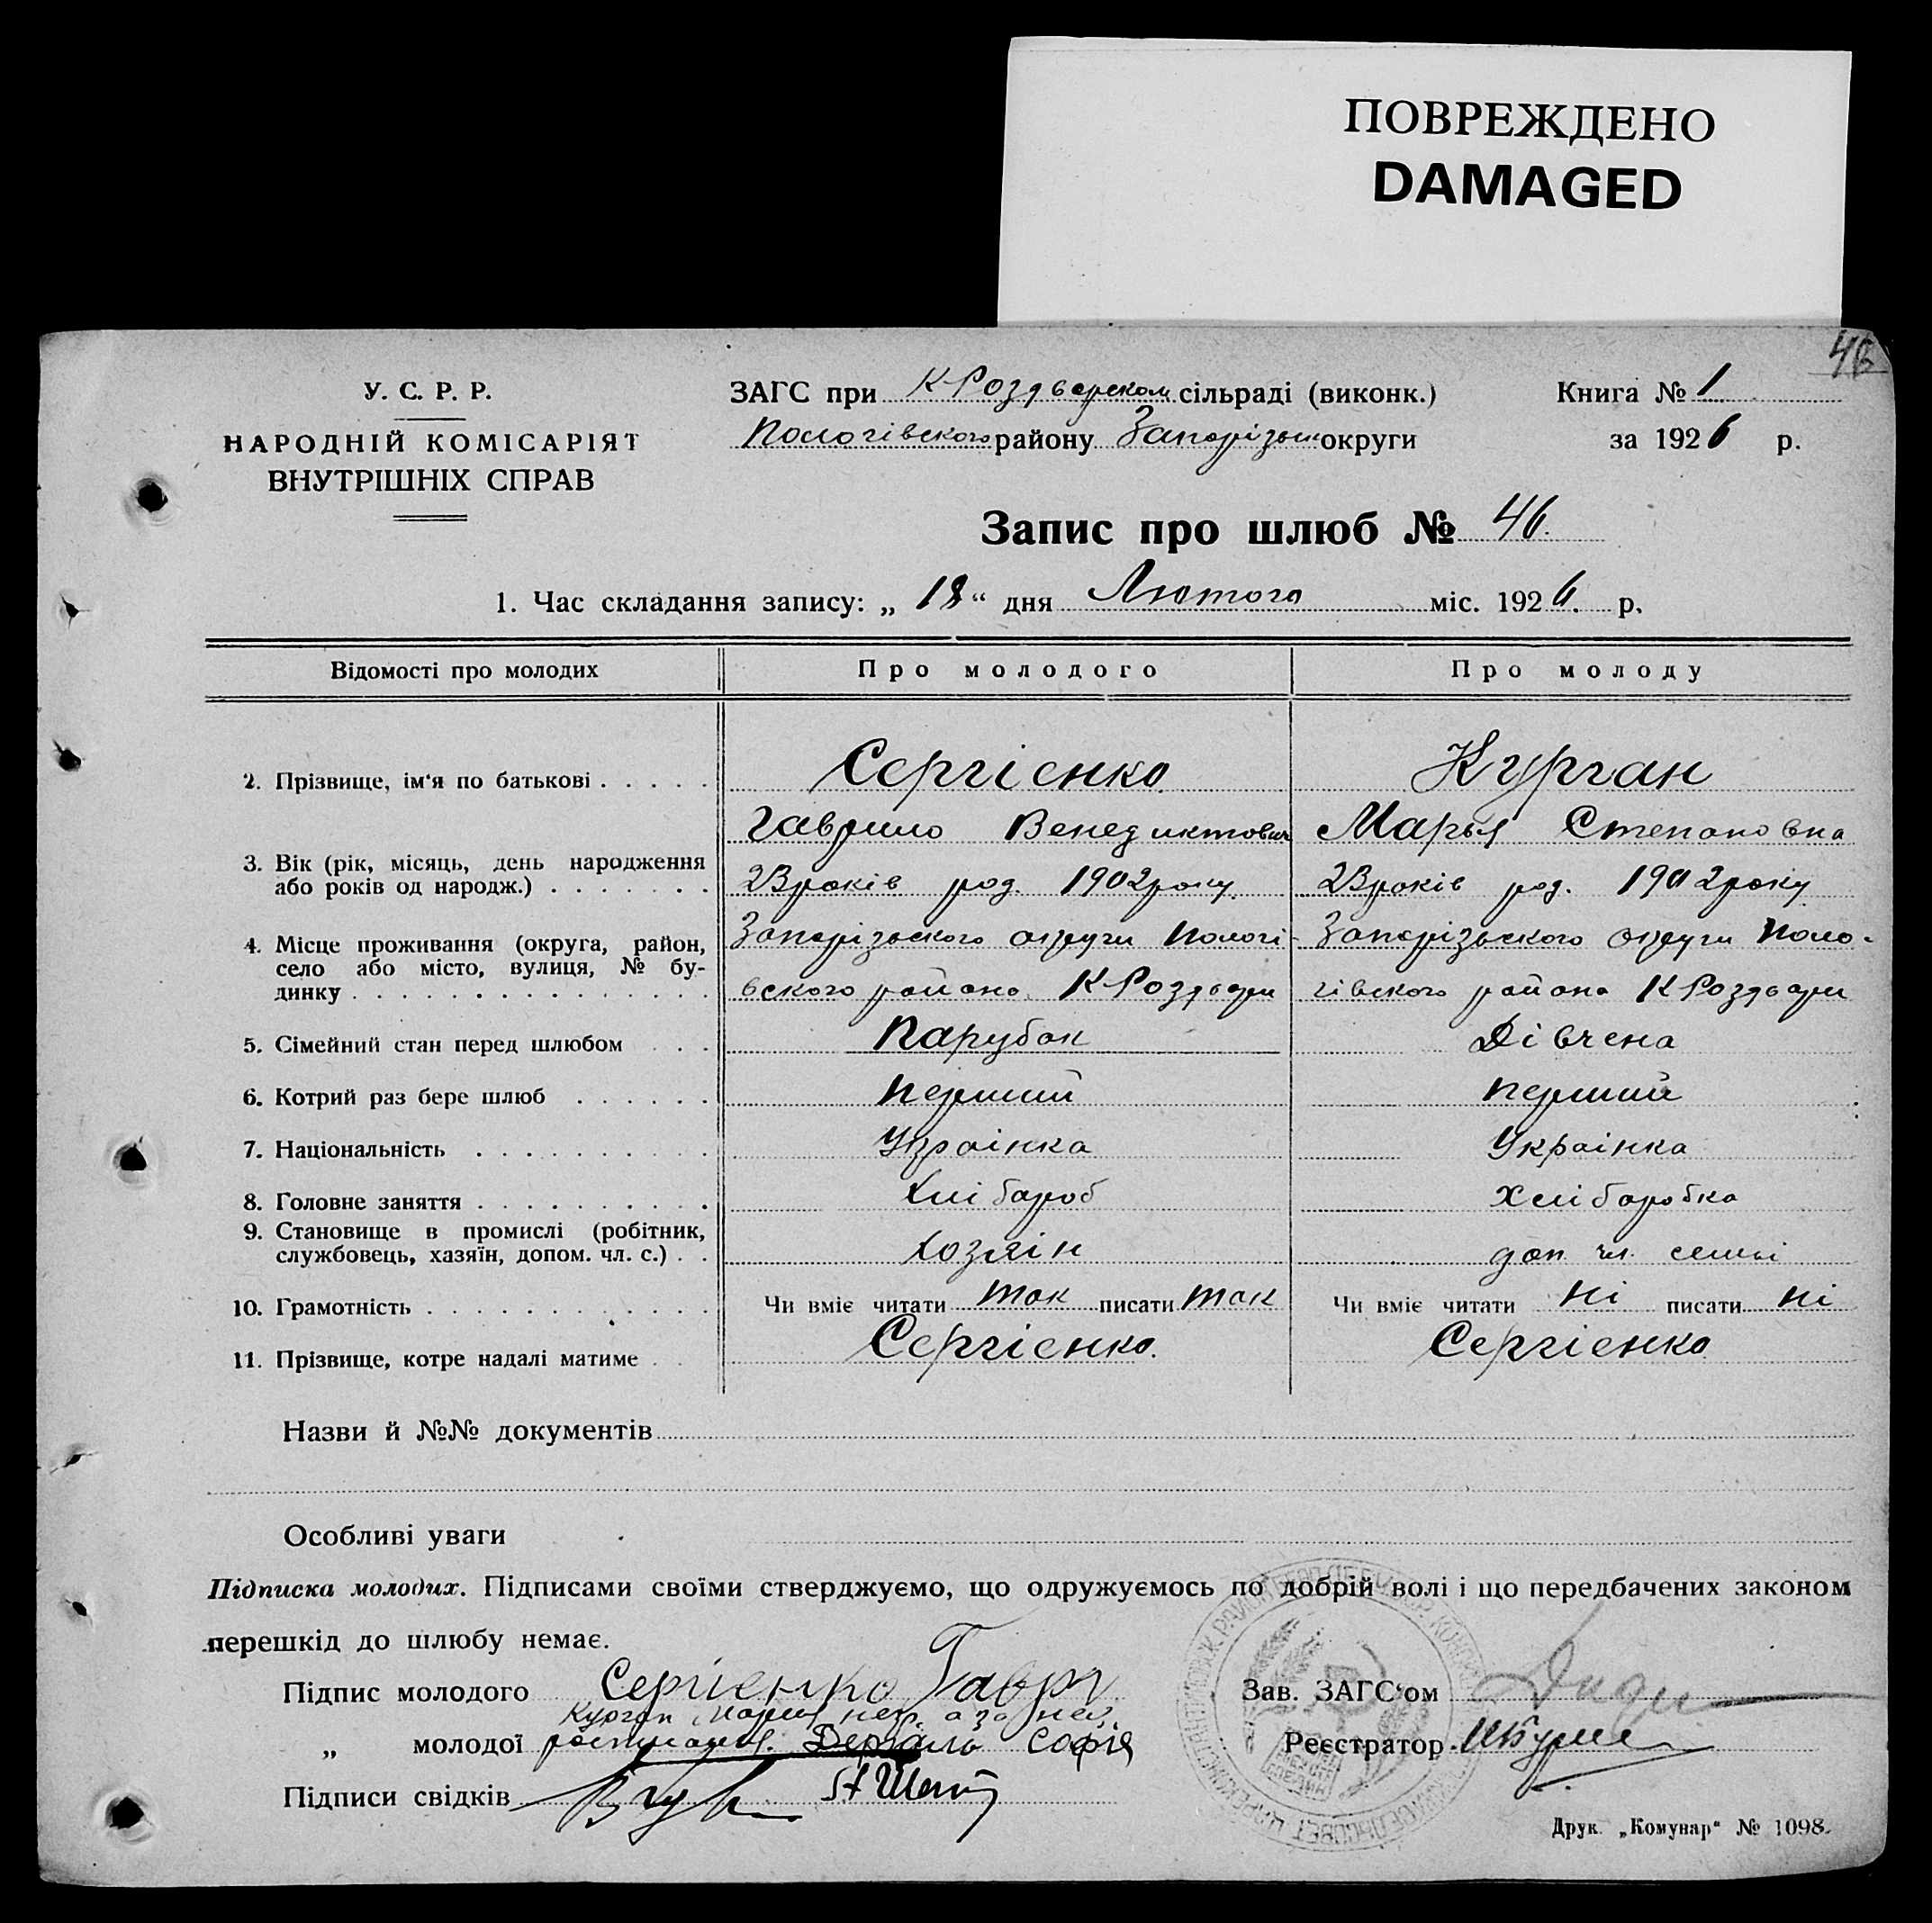 ПОВРЕЖДЕНО
DAMAGED
46
У. С. Р. Р.
НАРОДНІЙ КОМІСАРІЯТ
ВНУТРІШНІХ СПРАВ
ЗАГС при К Роздорском сільраді (виконк.)
Пологівского району Запорізьк округи
Книга № 1
за 1926 р.
Запис про шлюб № 46.
1. Час складання запису: „ 18 “ дня Лютого міс. 1926. р.
Відомості про молодих Про молодого Про молоду
2. Прізвище, ім‘я по батькові Сергієнко Курган
Гаврило Венедиктович Марья Степановна
3. Вік (рік, місяць, день народження
або років од народж.) 23 років род. 1902 року. 23 років род. 1902 року
4. Місце проживання (округа, район,
село або місто, вулиця, № бу-
динку
Запорізького округи Пологі- Запорізького округи Поло-
вского району К Роздори гівского району К Роздори
5. Сімейний стан перед шлюбом Парубок Дівчена
6. Котрий раз бере шлюб перший перший
7. Національність Українка Українка
8. Головне заняття Хлібороб Хліборобка
9. Становище в промислі (робітник,
службовець, хазяїн, допом. чл. с.) Хозяін доп. чл. семьї
10. Грамотність Чи вміє читати так писати так Чи вміє читати ні писати ні
11. Прізвище, котре надалі матиме Сергієнко. Сергієнко
Назви й №№ документів
Особливі уваги
Підписка молодих. Підписами своїми стверджуємо, що одружуємось по добрій волі і що передбачених законом
перешкід до шлюбу немає.
Підпис молодого Сергієнко Гавр
Курган Мария нег. а за неё
„ молодої росписался. Софія
Підписи свідків
Зав. ЗАГС‘ом
Реєстратор
Друк. „Комунар“ № 1098.